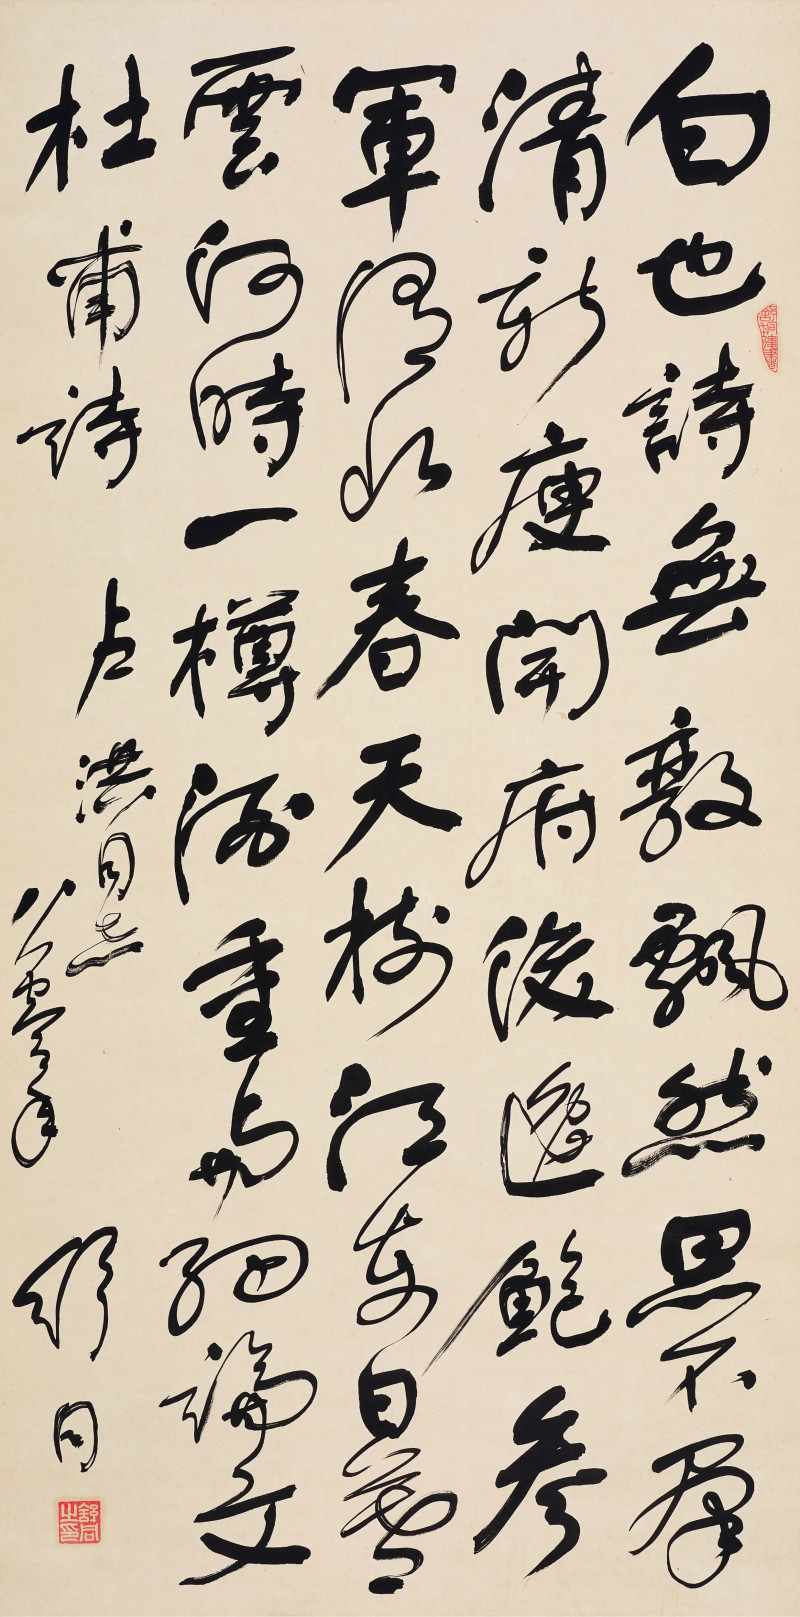 白也詩無敵飄然思不羣
清新庾開府俊逸鮑參
軍渭北春天樹江東日暮
雲何時一樽酒重與細論文
杜甫詩 卢洪同志
八零年 舒同
舒同之印